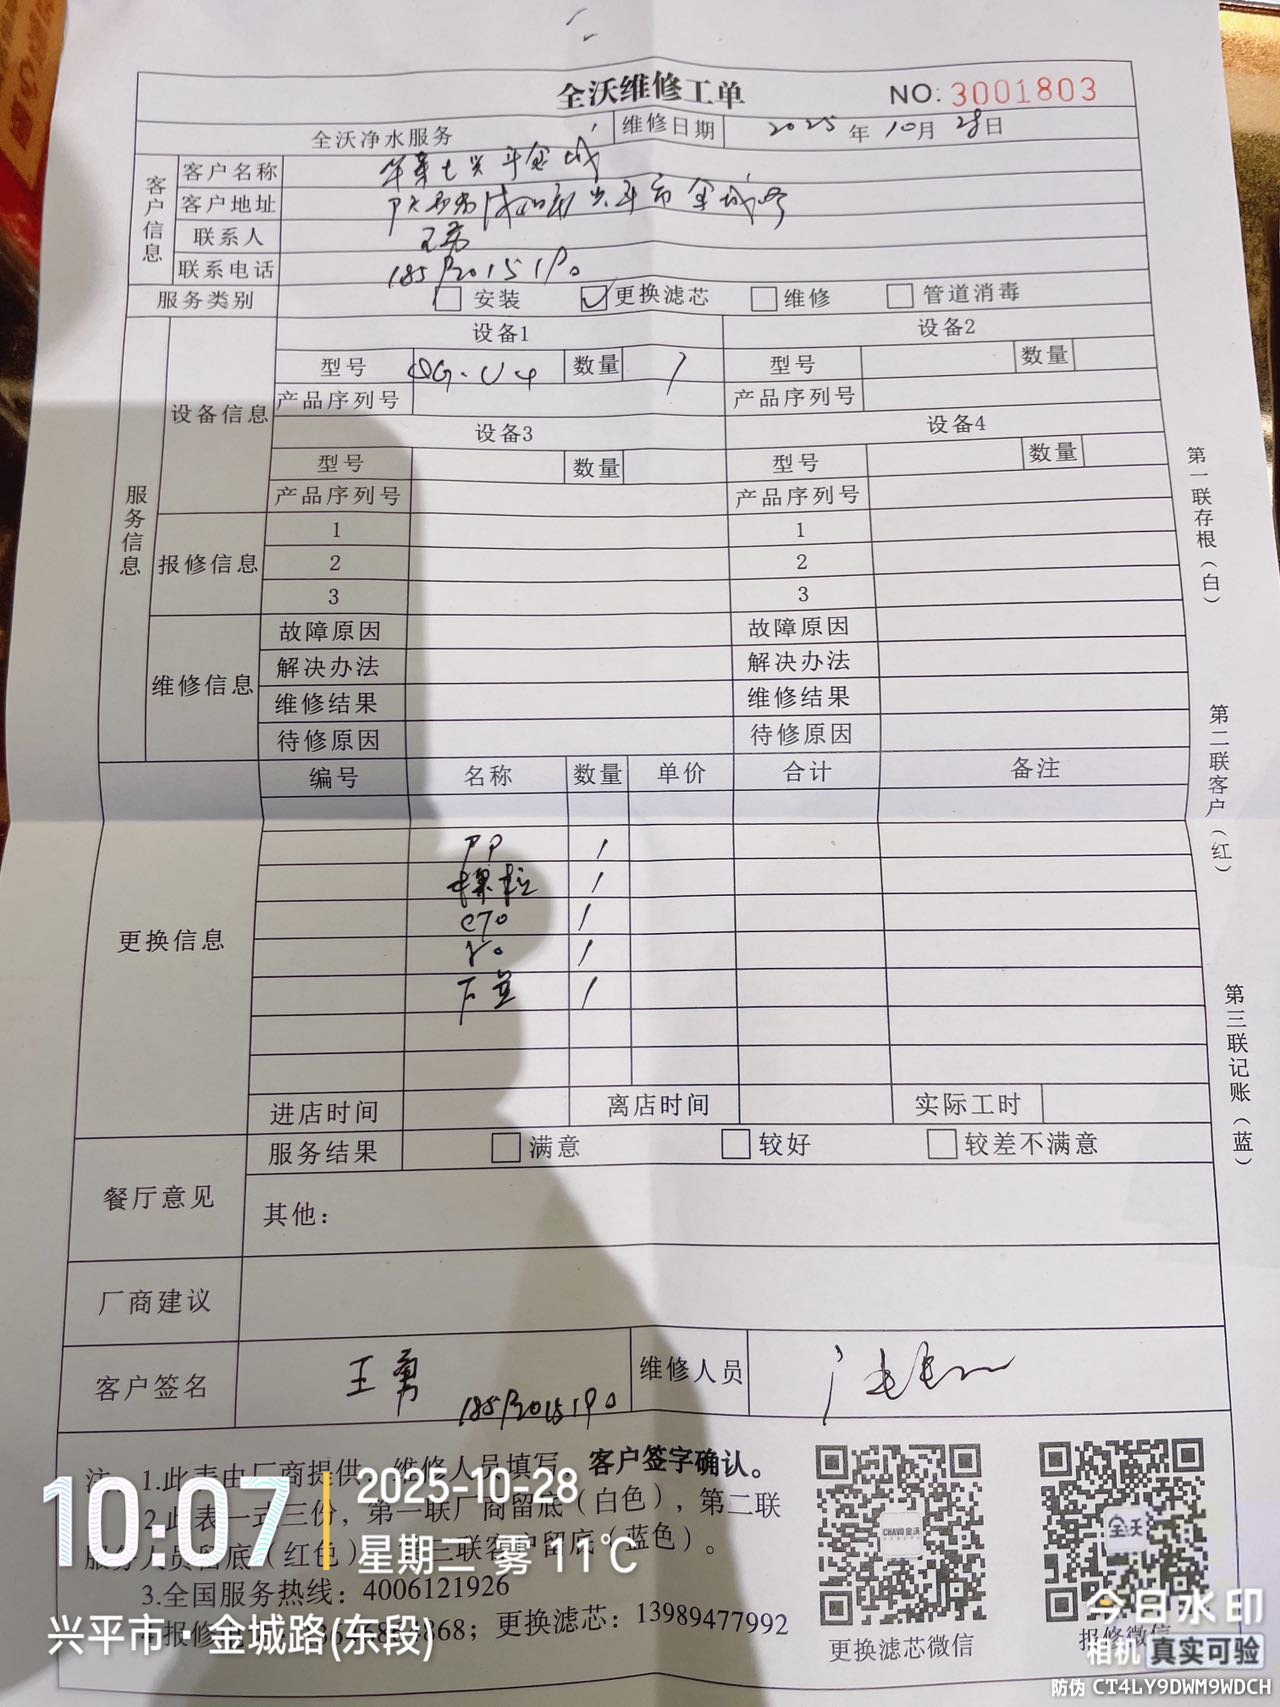 全沃维修工单 NO: 3001803
全沃净水服务 维修日期 2025 年 10 月 28 日
客户信息
客户名称
客户地址 兴平市金城路
联系人 王勇
联系电话
服务类别 安装 更换滤芯 维修 管道消毒
服务信息
设备信息
设备1 设备2
型号 数量 1 型号 数量
产品序列号 产品序列号
设备3 设备4
型号 数量 型号 数量
产品序列号 产品序列号
报修信息
1 1
2 2
3 3
维修信息
故障原因 故障原因
解决办法 解决办法
维修结果 维修结果
待修原因 待修原因
更换信息
编号 名称 数量 单价 合计 备注
PP 1
颗粒 1
CTO 1
RO 1
1
进店时间 离店时间 实际工时
餐厅意见
服务结果 满意 较好 较差不满意
其他：
厂商建议
客户签名 王勇 维修人员
第一联存根（白）
第二联客户（红）
第三联记账（蓝）
注：1.此表由厂商提供，维修人员填写，客户签字确认。
2.此表一式三份，第一联厂商留底（白色），第二联
服务人员留底（红色），第三联客户留底（蓝色）。
3.全国服务热线：4006121926
报修 868；更换滤芯：13989477992
CHAVO 全沃
全沃
更换滤芯微信
报修微信
10:07
2025-10-28
星期二 雾 11℃
兴平市·金城路(东段)
今日水印
相机 真实可验
防伪 CT4LY9DWM9WDCH